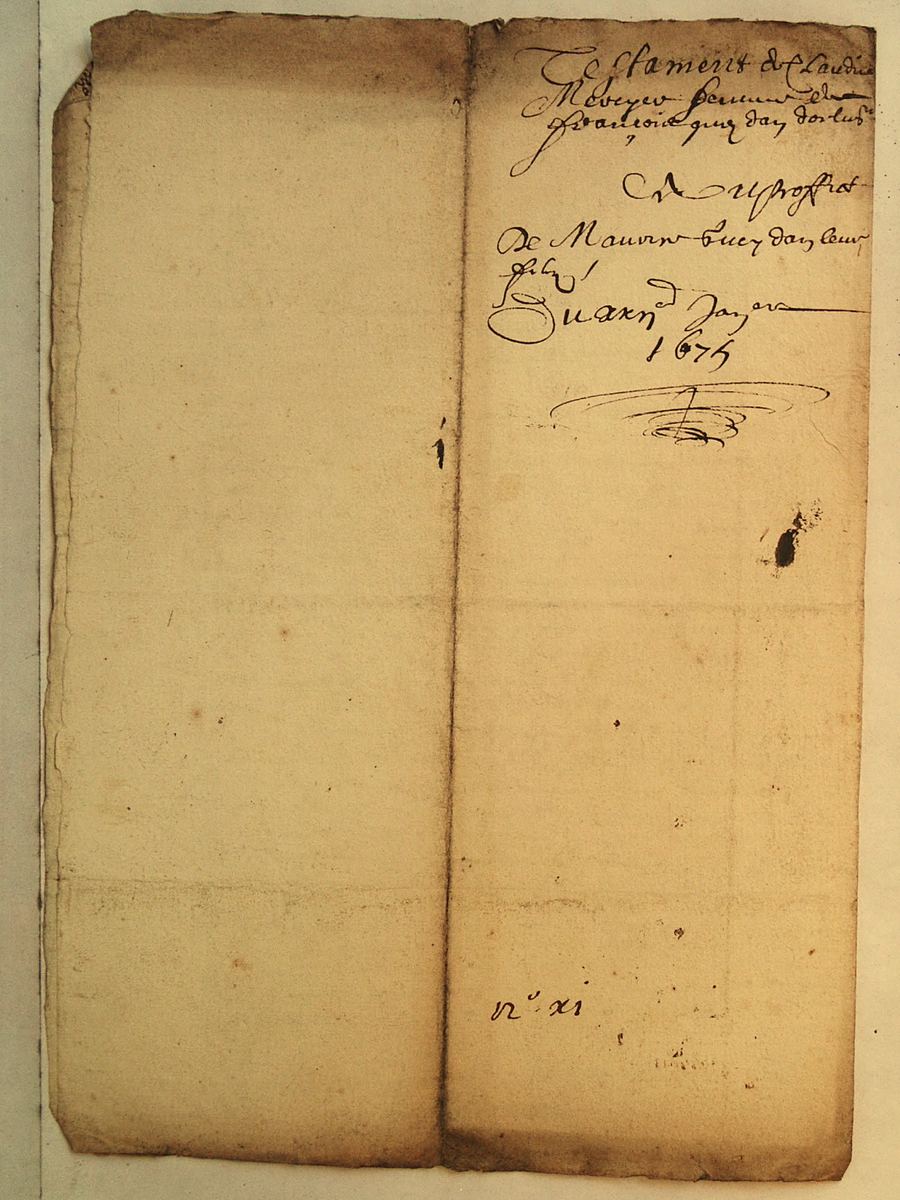 Testament de Claudine
Mercyer femme de
françois quey dan dorlus
& du proffict
De Maurix Quey dan leur
filz
Du xxii Janvier
1675
n° xi